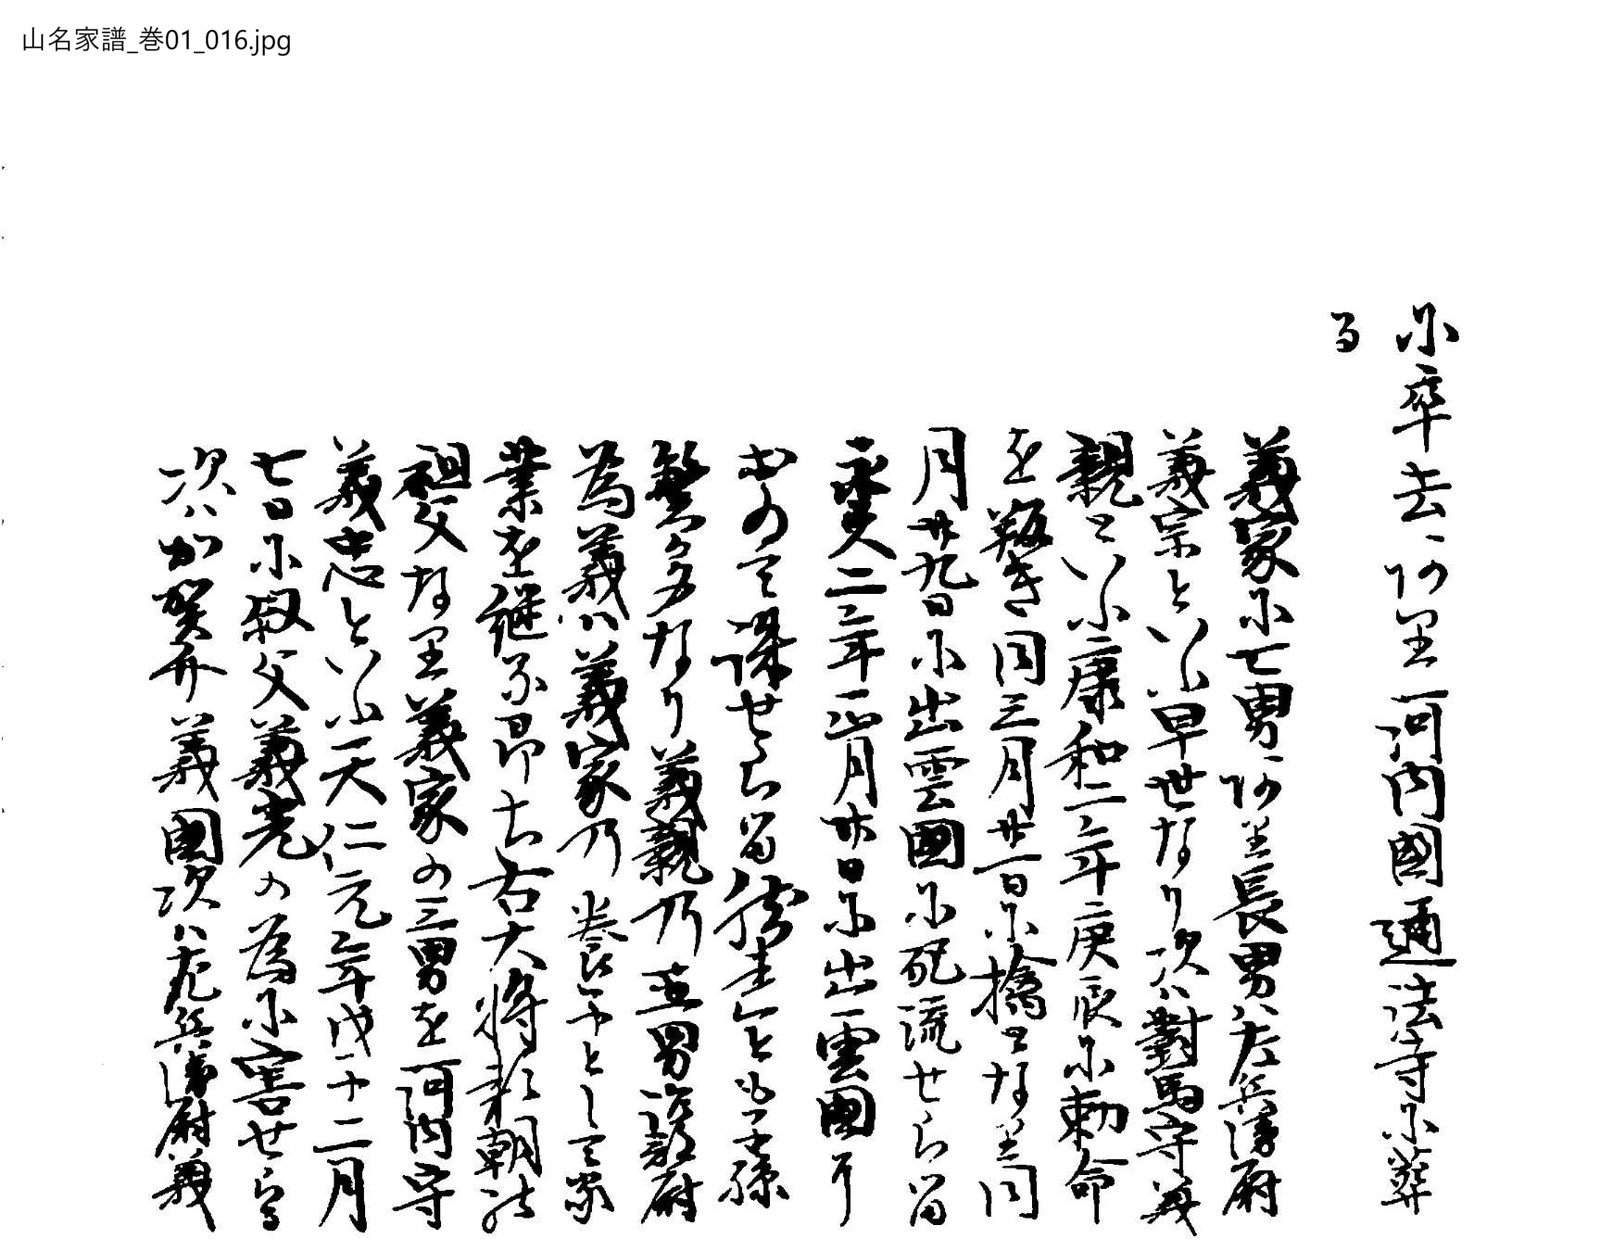 山名家譜_巻01_016.jpg
に卒去ありて河内國通法寺に葬
る
義家に七男あり長男ハ左兵衛尉
義宗といふ早世なり次ハ對馬守義
親といふ康和二年庚辰に勅命
を叛き同三月廿一日に擒となり同
月廿九日に出雲國に配流せらる
天仁二年正月廿日に出雲國に
おゐて誅せらる然といへとも子孫
繁多なり義親乃五男六郎尉
為義ハ義家乃養子として家
業を継ク即ち右大将頼朝の
祖父なり義家の三男を河内守
義忠といふ天仁元年戊子二月
七日に叔父義光の為に害せらる
次ハ加賀介義國次ハ左兵衛尉義